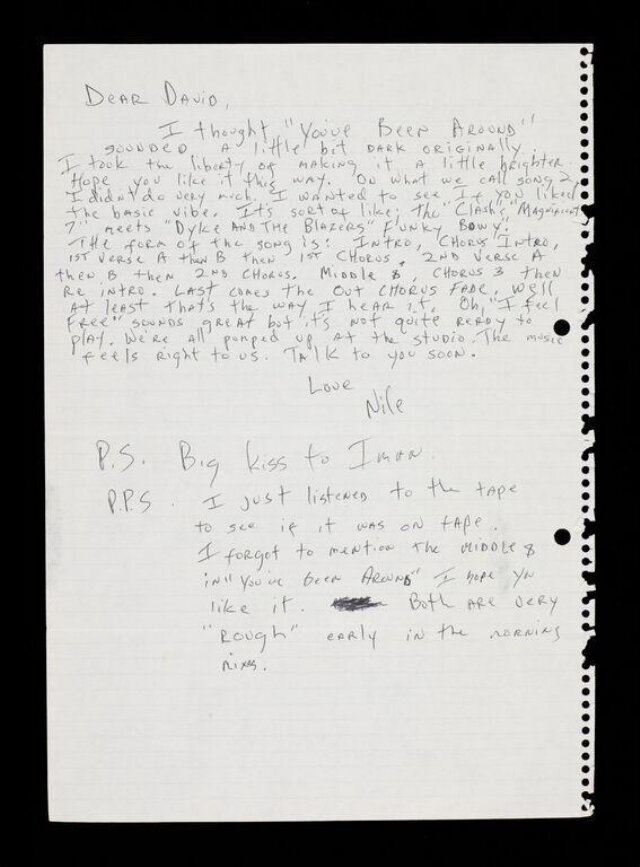 DEAR DAVID,
I thought "You've Been Around"
sounded a little bit dark originally.
I took the liberty of making it a little brighter.
Hope you like it this way. On what we call song 2,
I didn't do very much. I wanted to see if you liked
the basic vibe. It's sort of like; the "Clash's" "Magnificent
7" meets "Dyke and the Blazers" "Funky Bowy".
The form of the song is: Intro, Chorus Intro,
1st verse A then B then 1st Chorus, 2nd verse A
then B then 2nd Chorus. Middle 8, Chorus 3 then
Re intro. Last comes the out chorus fade. Well
at least that's the way I hear it. Oh, "I feel
Free" sounds great but it's not quite ready to
play. We're all pumped up at the studio. The music
feels right to us. Talk to you soon.
Love
Nile
P.S. Big kiss to Iman.
P.P.S. I just listened to the tape
to see if it was on tape.
I forgot to mention the middle 8
in "You've been Around" I hope yu
like it. Both are very
"rough" early in the morning
mixes.